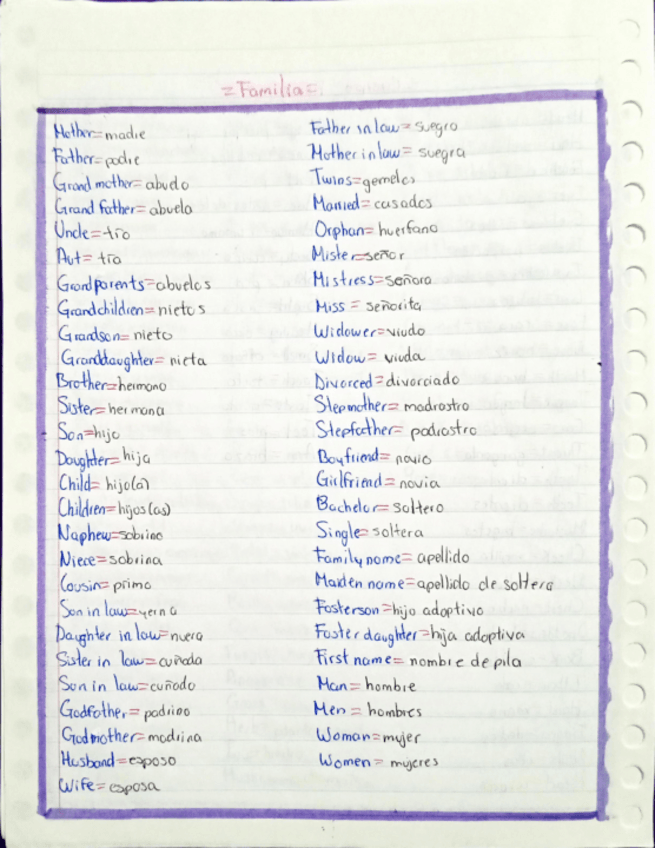 =Familia=
Mother=madre
Father=padre
Grand mother=abuelo
Grand father=abuela
Uncle=tío
Aut=tía
Grandparents=abuelos
Grandchildren=nietos
Grandson=nieto
Granddaughter=nieta
Brother=hermano
Sister=hermana
Son=hijo
Daughter=hija
Child=hijo(a)
Children=hijos(as)
Naphew=sobrino
Niece=sobrina
Cousin=primo
Son in law=yerno
Daughter in law=nuera
Sister in law=cuñada
Son in law=cuñado
Godfather=padrino
Godmother=madrina
Husband=esposo
Wife=esposa
Father in law=suegro
Mother in law=suegra
Twins=gemelos
Married=casados
Orphan=huerfano
Mister=señor
Mistress=señora
Miss=señorita
Widower=viudo
Widow=viuda
Divorced=divorciado
Stepmother=madrastra
Stepfather=padrastro
Boyfriend=novio
Girlfriend=novia
Bachelor=soltero
Single=soltera
Family name=apellido
Maiden name=apellido de soltera
Fosterson=hijo adoptivo
Foster daughter=hija adoptiva
First name=nombre de pila
Man=hombre
Men=hombres
Woman=mujer
Women=mujeres